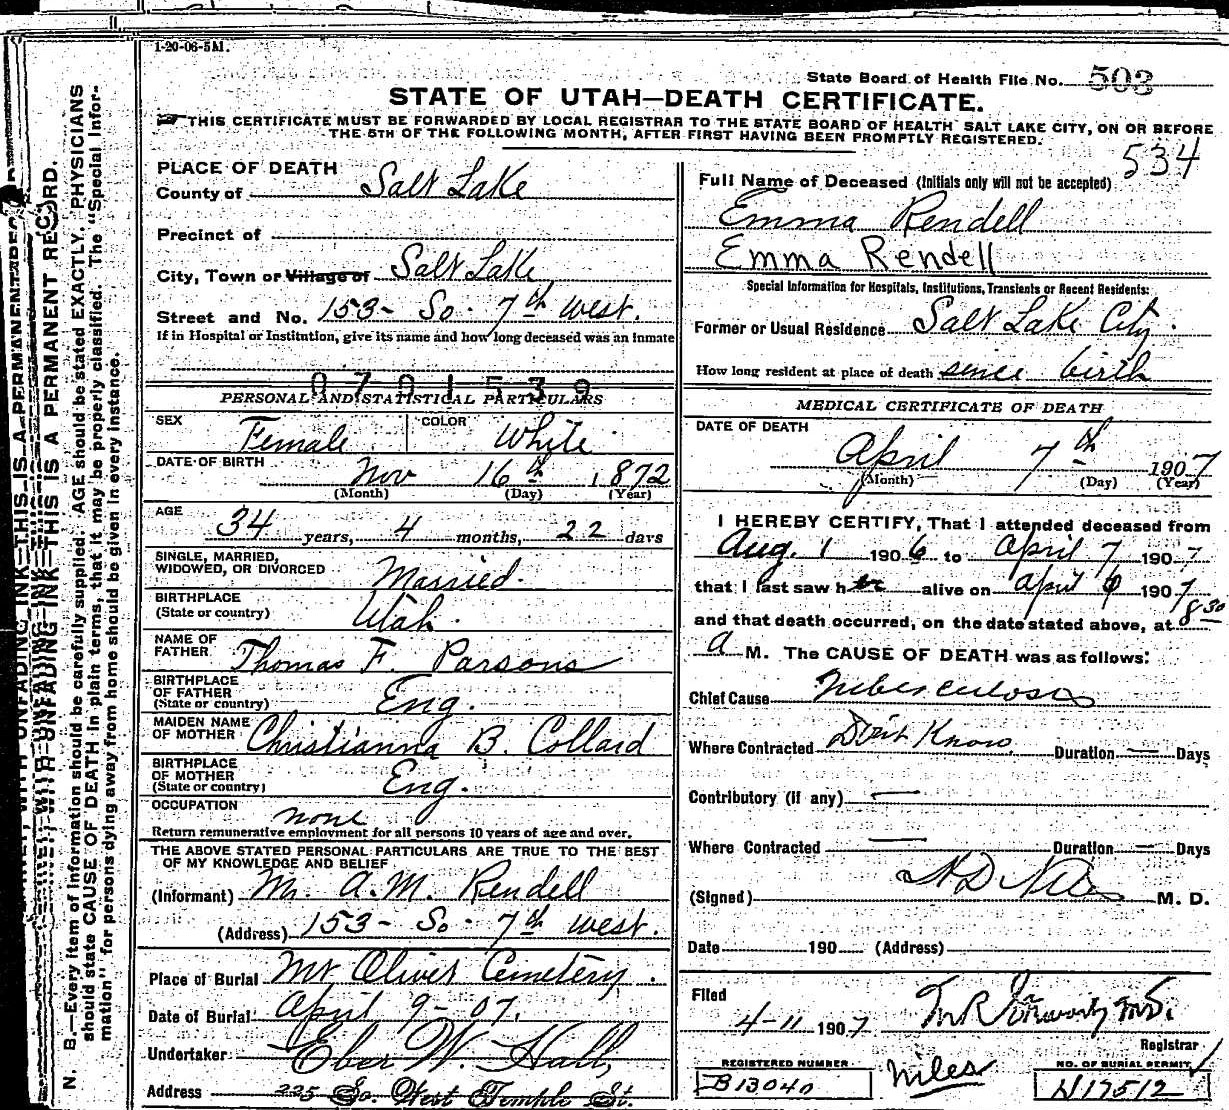 1-20-06-5M.
State Board of Health File No. 503
STATE OF UTAH—DEATH CERTIFICATE.
THIS CERTIFICATE MUST BE FORWARDED BY LOCAL REGISTRAR TO THE STATE BOARD OF HEALTH SALT LAKE CITY, ON OR BEFORE
THE 5TH OF THE FOLLOWING MONTH, AFTER FIRST HAVING BEEN PROMPTLY REGISTERED.
534
PLACE OF DEATH
County of Salt Lake
Precinct of
City, Town or Village of Salt Lake
Street and No. 153- So. 7th West.
If in Hospital or Institution, give its name and how long deceased was an inmate
0701539
PERSONAL AND STATISTICAL PARTICULARS
SEX Female COLOR White
DATE OF BIRTH Nov 16th 1872
(Month) (Day) (Year)
AGE 34 years, 4 months, 22 days
SINGLE, MARRIED,
WIDOWED, OR DIVORCED Married.
BIRTHPLACE
(State or country) Utah.
NAME OF
FATHER Thomas F. Parsons
BIRTHPLACE
OF FATHER
(State or country) Eng.
MAIDEN NAME
OF MOTHER Christianna B. Collard
BIRTHPLACE
OF MOTHER
(State or country) Eng.
OCCUPATION none
Return remunerative employment for all persons 10 years of age and over.
THE ABOVE STATED PERSONAL PARTICULARS ARE TRUE TO THE BEST
OF MY KNOWLEDGE AND BELIEF
(Informant) Mr. A. M. Rendell
(Address) 153- So- 7th West.
Place of Burial Mt Olivet Cemetery.
Date of Burial April 9-07.
Undertaker Eber W. Hall,
Address 225 So. West Temple St.
Full Name of Deceased (Initials only will not be accepted)
Emma Rendell
Emma Rendell
Special Information for Hospitals, Institutions, Transients or Recent Residents:
Former or Usual Residence Salt Lake City.
How long resident at place of death since birth
MEDICAL CERTIFICATE OF DEATH
DATE OF DEATH
April 7th 1907
(Month) (Day) (Year)
I HEREBY CERTIFY, That I attended deceased from
Aug. 1 1906 to April 7 1907
that I last saw her alive on April 6 1907
and that death occurred, on the date stated above, at 8 30
A M. The CAUSE OF DEATH was as follows:
Chief Cause Tuberculosis
Where Contracted Don't Know Duration — Days
Contributory (if any) —
Where Contracted — Duration — Days
(Signed) H D Niles M. D.
Date 190 (Address)
Filed
4-11 1907 M.D.
Registrar
REGISTERED NUMBER
B13040
Niles
NO. OF BURIAL PERMIT
N17512
N. B.—Every item of information should be carefully supplied. AGE should be stated EXACTLY. PHYSICIANS
should state CAUSE OF DEATH in plain terms, that it may be properly classified. The "Special Infor-
mation" for persons dying away from home should be given in every instance.